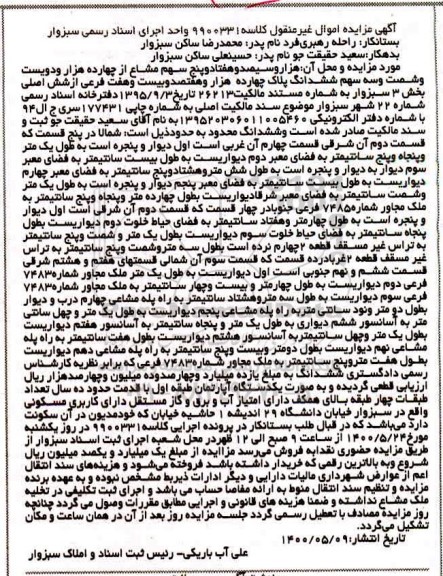 آگهی مزایده اموال غیرمنقول کلاسه۹۹۰۰۳۳۱ واحد اجرای اسناد رسمی سبزوار
بستانکار: راحله رهبری‌فرد نام پدر: محمدرضا ساکن سبزوار
بدهکار:سعید حقیقت جو نام پدر: حسینعلی ساکن سبزوار
مورد مزایده و محل آن:هزاروسیصدوهفتادوپنج سهم مشاع از چهارده هزار ودویست
وشصت وسه سهم ششدانگ پلاک چهارده هزار وهفتصدوبیست وهفت فرعی ازشش اصلی
بخش ۳ سبزوار به شماره مستند مالکیت۲۶۲۱۳ تاریخ۱۳۹۵/۹/۳دفترخانه اسناد رسمی
شماره ۲۲ شهر سبزوار موضوع سند مالکیت اصلی به شماره چاپی ۱۷۷۴۳۱سری ج ال۹۴
با شماره دفتر الکترونیکی ۱۳۹۵۲۰۳۰۶۰۱۱۰۰۵۴۶۰به نام آقای سعید حقیقت جو ثبت و
سند مالکیت صادر شده است وششدانگ محدود به حدودذیل است: شمالا در پنج قسمت که
قسمت دوم آن شرقی قسمت چهارم آن غربی است اول دیوار و پنجره است به طول یک متر
وپنجاه وپنج سانتیمتر به فضای معبر دوم دیواریست به طول بیست سانتیمتر به فضای معبر
سوم دیوار به دیوار و پنجره است به طول شش متروهشتادوپنج سانتیمتر به فضای معبر چهارم
دیواریست به طول بیست سانتیمتر به فضای معبر پنجم دیوار و پنجره است به طول یک متر
وشصت سانتیمتر به فضای معبر شرقادیواریست بطول چهارده متر وپنجاه وپنج سانتیمتر به
ملک مجاور شماره۷۴۸۵ فرعی جنوبادر چهار قسمت که قسمت دوم آن شرقی است اول دیوار
و پنجره است به طول چهارمتر وهفتاد سانتیمتر به فضای حیاط خلوت دوم دیواریست بطول
پنجاه سانتیمتر به فضای حیاط خلوت سوم دیواریست بطول یک متر و شصت وپنج سانتیمتر
به تراس غیر مسقف قطعه ۲چهارم نرده است بطول سه متروشصت وپنج سانتیمتر به تراس
غیر مسقف قطعه ۲غربادرده قسمت که قسمت سوم آن شمالی قسمتهای هفتم و هشتم شرقی
قسمت ششم و نهم جنوبی است اول دیواریست به طول یک متر ملک مجاور شماره۷۴۸۳
فرعی دوم دیواریست به طول چهارمتر و بیست وچهار سانتیمتر به ملک مجاور شماره۷۴۸۳
فرعی سوم دیواریست به طول سه متروهشتاد سانتیمتر به راه پله مشاعی چهارم درب و دیوار
بطول دو متر ونود سانتی متربه راه پله مشاعی پنجم دیواریست به طول یک متر و چهل سانتی
متر به آسانسور ششم دیواری به طول یک متر و پنجاه سانتیمتر به آسانسور هفتم دیواریست
بطول یک متر وچهل سانتیمتربه آسانسور هشتم دیواریست بطول هفت سانتیمتر به راه پله
مشاعی نهم دیواریست بطول دومتر وبیست وپنج سانتیمتر به راه پله مشاعی دهم دیواریست
بطول هفت متروپنج سانتیمتر به ملک مجاور شماره۷۴۸۳ فرعی که برابر نظریه کارشناس
رسمی دادگستری ششدانگ به مبلغ یازده میلیارد وچهارصدوده میلیون وچهارصدهزار ریال
ارزیابی قطعی گردیده و به صورت یکدستگاه آپارتمان طبقه اول با قدمت حدود ده سال تعداد
طبقات چهار طبقه بالای همکف دارای امتیاز آب وبرق و گاز مستقل دارای کاربری مسکونی
واقع در سبزوار خیابان دانشگاه ۲۹ اندیشه ۱ حاشیه خیابان که خودمدیون در آن سکونت
دارد می‌باشد که در قبال طلب بستانکار در پرونده اجرایی کلاسه ۹۹۰۰۳۳۱ در روز یکشنبه
مورخ۱۴۰۰/۵/۲۴ از ساعت ۹ صبح الی ۱۲ ظهردر محل شعبه اجرای ثبت اسناد سبزوار از
طریق مزایده حضوری نقدابه فروش می‌رسد مزایده از مبلغ یک میلیارد و یکصد میلیون ریال
شروع وبه بالاترین رقمی که خریدار داشته باشد فروخته می‌شود و هزینه‌های سند انتقال
اعم از عوارض شهرداری مالیات دارایی و دیگر ادارات ذیربط مشخص نبوده و به عهده برنده
مزایده و تنظیم سند انتقال منوط به ارائه مفاصا حساب می باشد و اجرای ثبت تکلیفی در تخلیه
ملک مشاع نداشته و ضمنا هزینه های قانونی و اجرایی مطابق مقررات وصول می گردد چنانچه
روز مزایده مصادف با تعطیل رسمی گردد جلسه مزایده روز بعد از آن در همان ساعت و مکان
تشکیل می‌گردد.
تاریخ انتشار:۱۴۰۰/۰۵/۰۹
علی آب باریکی- رئیس ثبت اسناد و املاک سبزوار